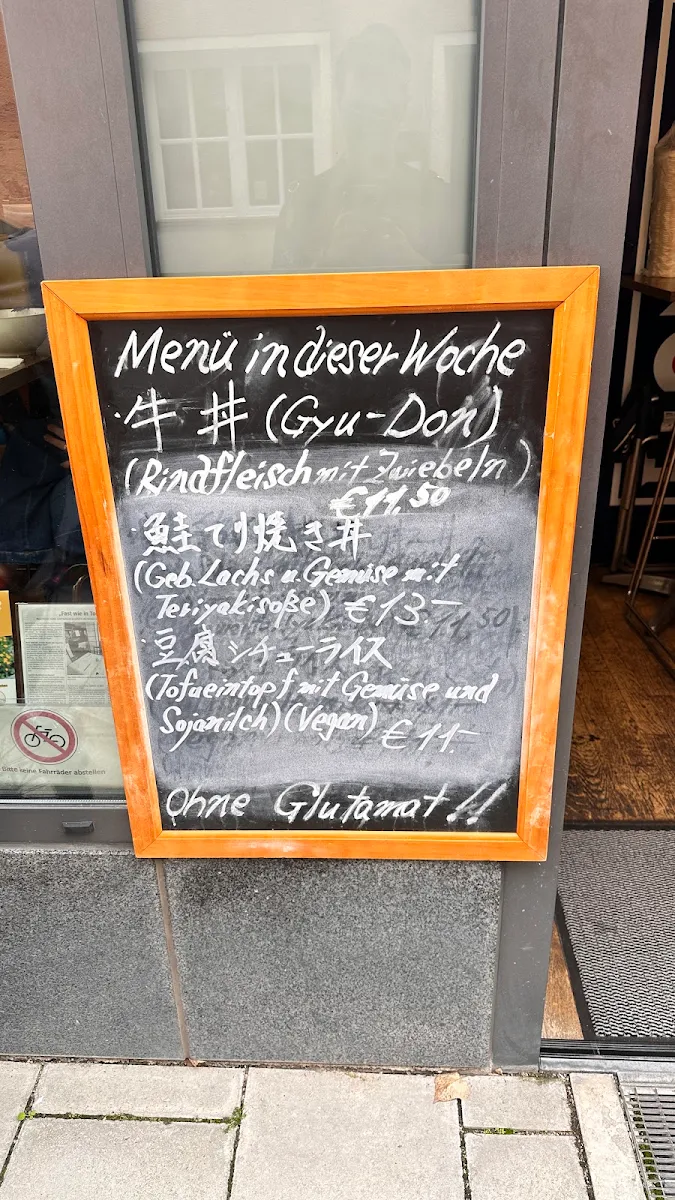 Menü in dieser Woche
・牛丼 (Gyu-Don)
(Rindfleisch mit Zwiebeln)
€11,50
・鮭てり焼き丼
(Geb. Lachs u. Gemüse mit
Teriyakisoße) €13-
・豆腐シチューライス
(Tofueintopf mit Gemüse und
Sojamilch) (Vegan)
€11.-
Ohne Glutamat!!
"Fast wie in
Bitte keine Fahrräder abstellen